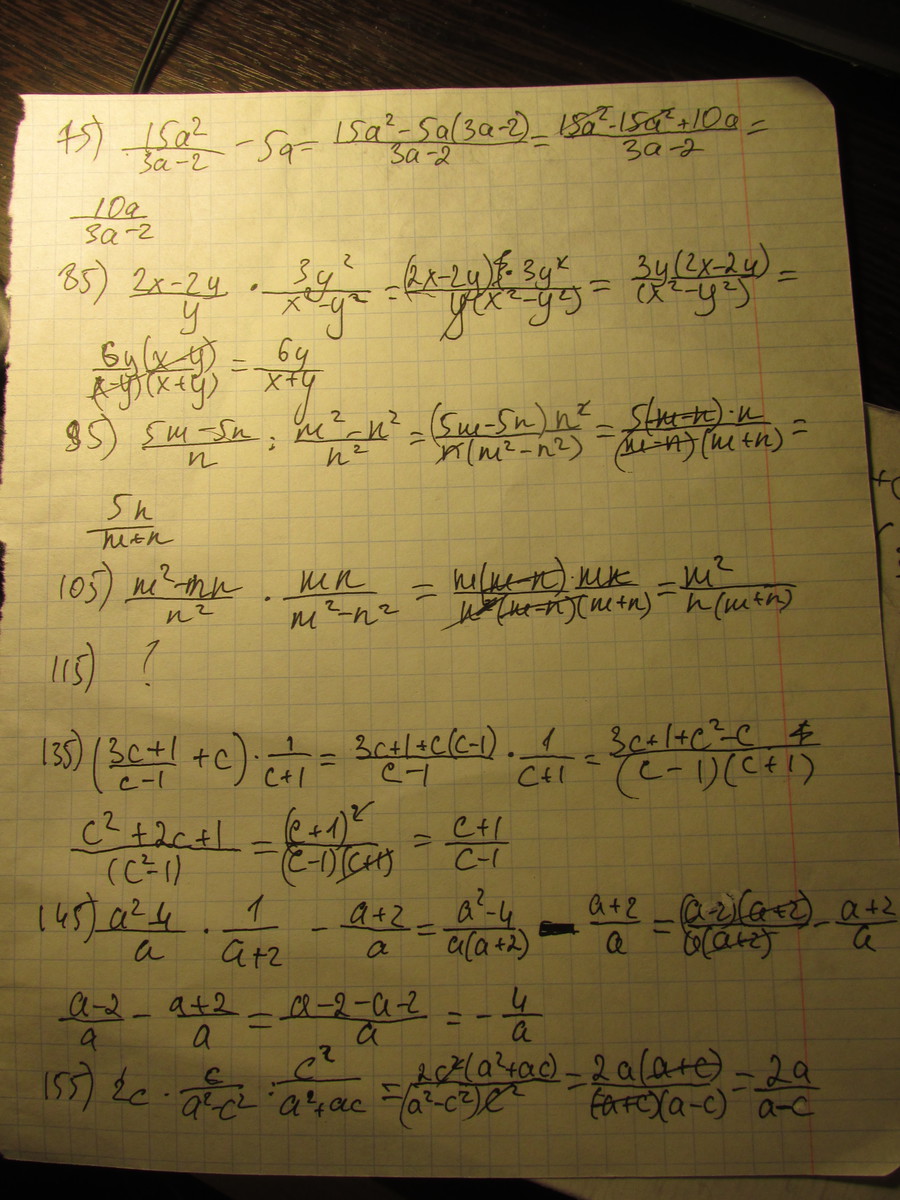 75) 15a²/(3a-2) - 5a = (15a² - 5a(3a-2))/(3a-2) = (15a² - 15a² + 10a)/(3a-2) =
10a/(3a-2)
85) (2x-2y)/y · 3y²/(x²-y²) = ((2x-2y) · 3y²)/(y(x²-y²)) = 3y(2x-2y)/(x²-y²) =
6y(x-y)/((x-y)(x+y)) = 6y/(x+y)
95) (5m-5n)/n : (m²-n²)/n² = ((5m-5n)n²)/(n(m²-n²)) = (5(m-n)·n)/((m-n)(m+n)) =
5n/(m+n)
105) (m²-mn)/n² · mn/(m²-n²) = (m(m-n)·mn)/(n²(m-n)(m+n)) = m²/(n(m+n))
115) ?
135) ((3c+1)/(c-1) + c) · 1/(c+1) = (3c+1+c(c-1))/(c-1) · 1/(c+1) = (3c+1+c²-c)/((c-1)(c+1))
(c²+2c+1)/(c²-1) = (c+1)²/((c-1)(c+1)) = (c+1)/(c-1)
145) (a²-4)/a · 1/(a+2) - (a+2)/a = (a²-4)/(a(a+2)) - (a+2)/a = ((a-2)(a+2))/(a(a+2)) - (a+2)/a
(a-2)/a - (a+2)/a = (a-2-a-2)/a = -4/a
155) 2c · c/(a²-c²) : c²/(a²+ac) = (2c²(a²+ac))/((a²-c²)c²) = (2a(a+c))/((a+c)(a-c)) = 2a/(a-c)